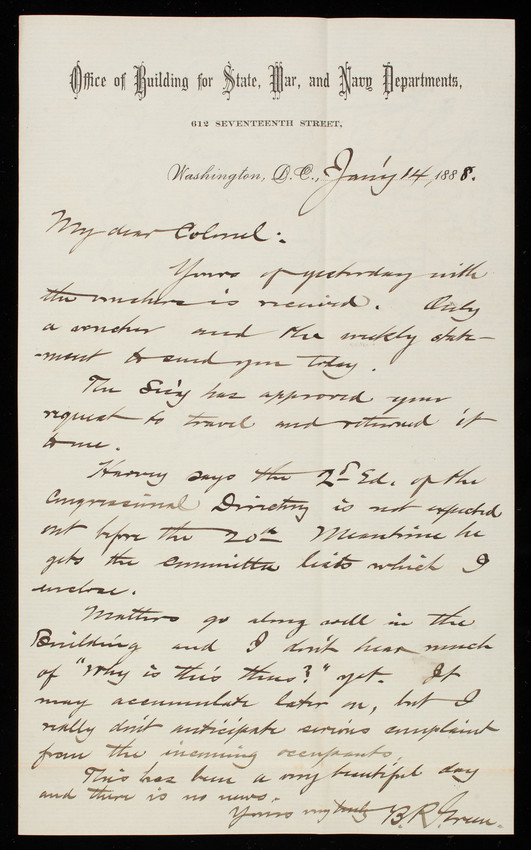 Office of Building for State, War, and Navy Departments,
612 SEVENTEENTH STREET,
Washington, D.C., Jan'y 14, 1888.
My dear Colonel:
Yours of yesterday with
the vouchers is received. Only
a voucher and the weekly state-
ment to send you today.
The Sec'y has approved your
request to travel and returned it
to me.
Harvey says the 2d Ed. of the
Congressional Directory is not expected
out before the 20th. Meantime he
gets the committee lists which I
enclose.
Matters go along well in the
Building and I don't hear much
of "Why is this thus?" yet. It
may accumulate later on, but I
really don't anticipate serious complaint
from the incoming occupants.
This has been a very beautiful day
and there is no news.
Yours very truly B.R. Green.